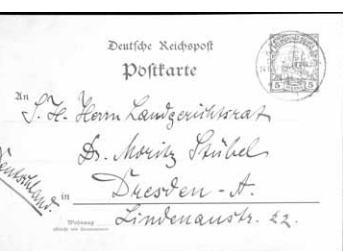 Deutsche Reichspost
Postkarte
An S. H. Herrn Landgerichtsrat
Dr. Moritz Stübel
Deutschland.
in Dresden - A.
Wohnung
Lindenaustr. 22.
5 5